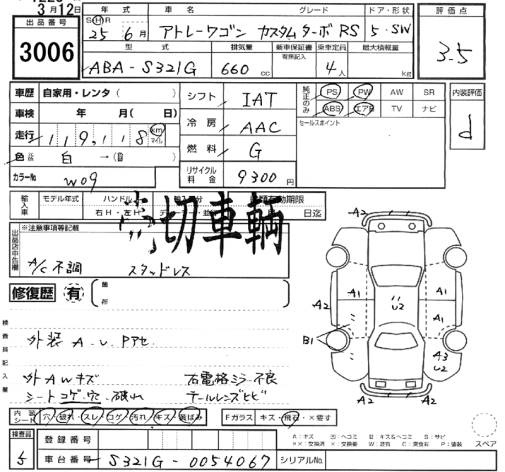 3月12日
出品番号 年式 車名 グレード ドア・形状 評価点
3006 SHR 25年6月 アトレーワゴン カスタムターボRS 5・SW 3.5
型式 排気量 新車保証書 乗車定員 最大積載量
有無記入
ABA-S321G 660cc 4人 kg
車歴 自家用・レンタ( ) シフト IAT 純正のみ PS PW AW SR 内装評価
車検 年 月( 日) 冷房 AAC ABS エアB TV ナビ d
走行 119,118 km マイル 燃料 G セールスポイント
色 白→( )
カラーNo W09 リサイクル料金 9300円
輸入車 モデル年式 ハンドル 有効期限
右H・左H 日迄
切車輌
出品店申告欄 ※注意事項等記載
A/C不調 スタッドレス
修復歴 有 箇所
A2 A2
A1 A1
A2 U2 A1
B1 A3 U2
A2 A2
検査員記入欄
外装 A.U.Pアセ
外AWキズ 右電格ミラー不良
シートコゲ・穴・破れ テールレンズヒビ
内装シート 穴・破れ・スレ・コゲ・汚れ・キズ・黄ばみ Fガラス キズ・飛石・×要す
検査員 5 登録番号
車台番号 S321G-0054067 シリアルNo.
A:キズ U:ヘコミ B:キズ&ヘコミ S:サビ
スペア